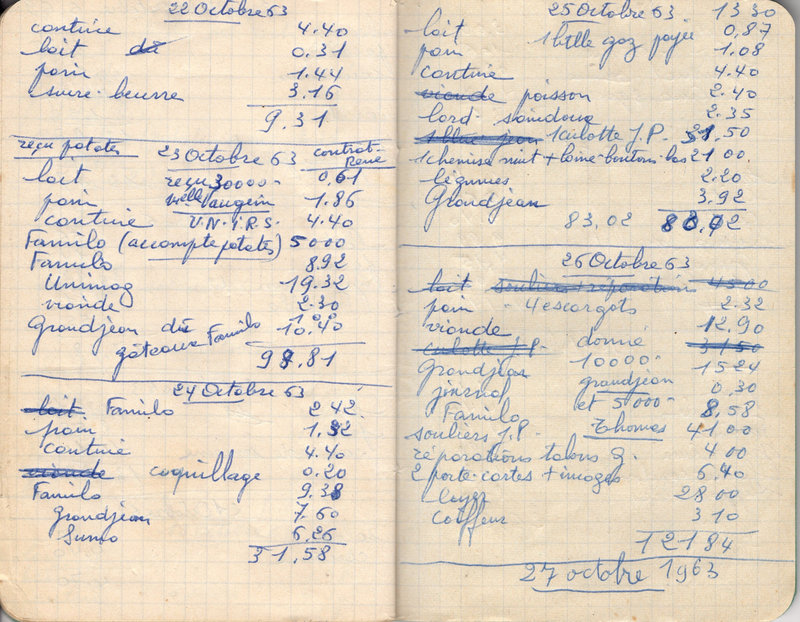 22 Octobre 63
cantine 4.40
lait dû 0.31
pain 1.44
sucre-beurre 3.16
9.31
reçu patates 23 Octobre 63 contrat-René
lait reçu 30000- 0.61
pain Melle Vaugein 1.86
cantine V.N.I.R.S. 4.40
Familo (accompte patates) 5000
Familo 8.92
Unimag 19.32
viande 2.30
Grandjean dû 10.40
gâteaux Familo 1.00
98.81
24 Octobre 63
lait Familo 2.42
pain 1.32
cantine 4.40
viande coquillage 0.20
Familo 9.38
Grandjean 7.60
Suma 6.26
31,58
25 Octobre 63 13 30
lait 0,87
pain 1 btlle gaz payée 1.08
cantine 4.40
viande poisson 2.40
lard - saindoux 2.35
1 culotte J.P. 31,50
1 chemise nuit + laine-boutons-bas 21 00
légumes 2.20
Grandjean 3.92
83,02 83.02
26 Octobre 63
lait souliers + réparations 45 00
pain - 4 escargots 2.32
viande 12,90
culotte J.P. donné 31 50
Grandjean 10000- 15 24
journal grandjean 0,30
Familo et 5000- 8,58
souliers J.P. Thomas 41 00
réparations talons g. 4 00
2 porte-cartes + images 6,40
loyer 28 00
coiffeur 3 10
121 84
27 octobre 1963